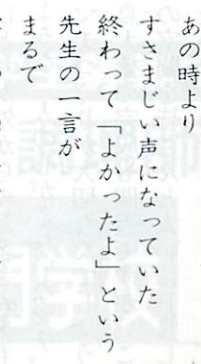 あの時より
すさまじい声になっていた
終わって「よかったよ」という
先生の一言が
まるで